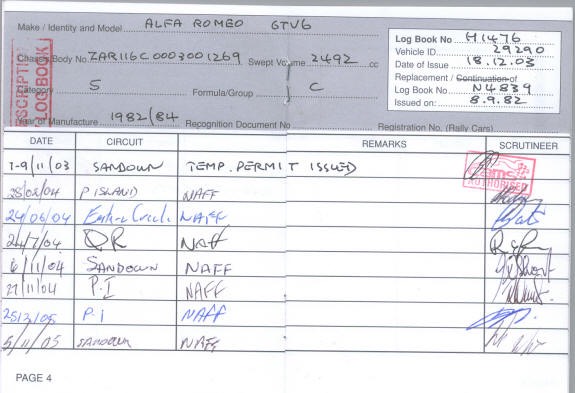 Make / Identity and Model ALFA ROMEO GTV6
Chassis/Body No. ZAR116C0003001269 Swept Volume 2492 cc
Category 5 Formula/Group C
Year of Manufacture 1982/84 Recognition Document No Registration No. (Rally Cars)
LOG BOOK
Log Book No H1476
Vehicle ID 29290
Date of Issue 18.12.03
Replacement / Continuation of
Log Book No N4839
Issued on: 8.9.82
DATE CIRCUIT REMARKS SCRUTINEER
7-9/11/03 SANDOWN TEMP. PERMIT ISSUED
AUTHORISED
28/02/04 P ISLAND NAFF
24/06/04 NAFF
24/7/04 QR NAFF
6/11/04 SANDOWN NAFF
27/11/04 P.I NAFF
25/3/05 P.i NAFF
5/11/05 SANDOWN NAFF
PAGE 4